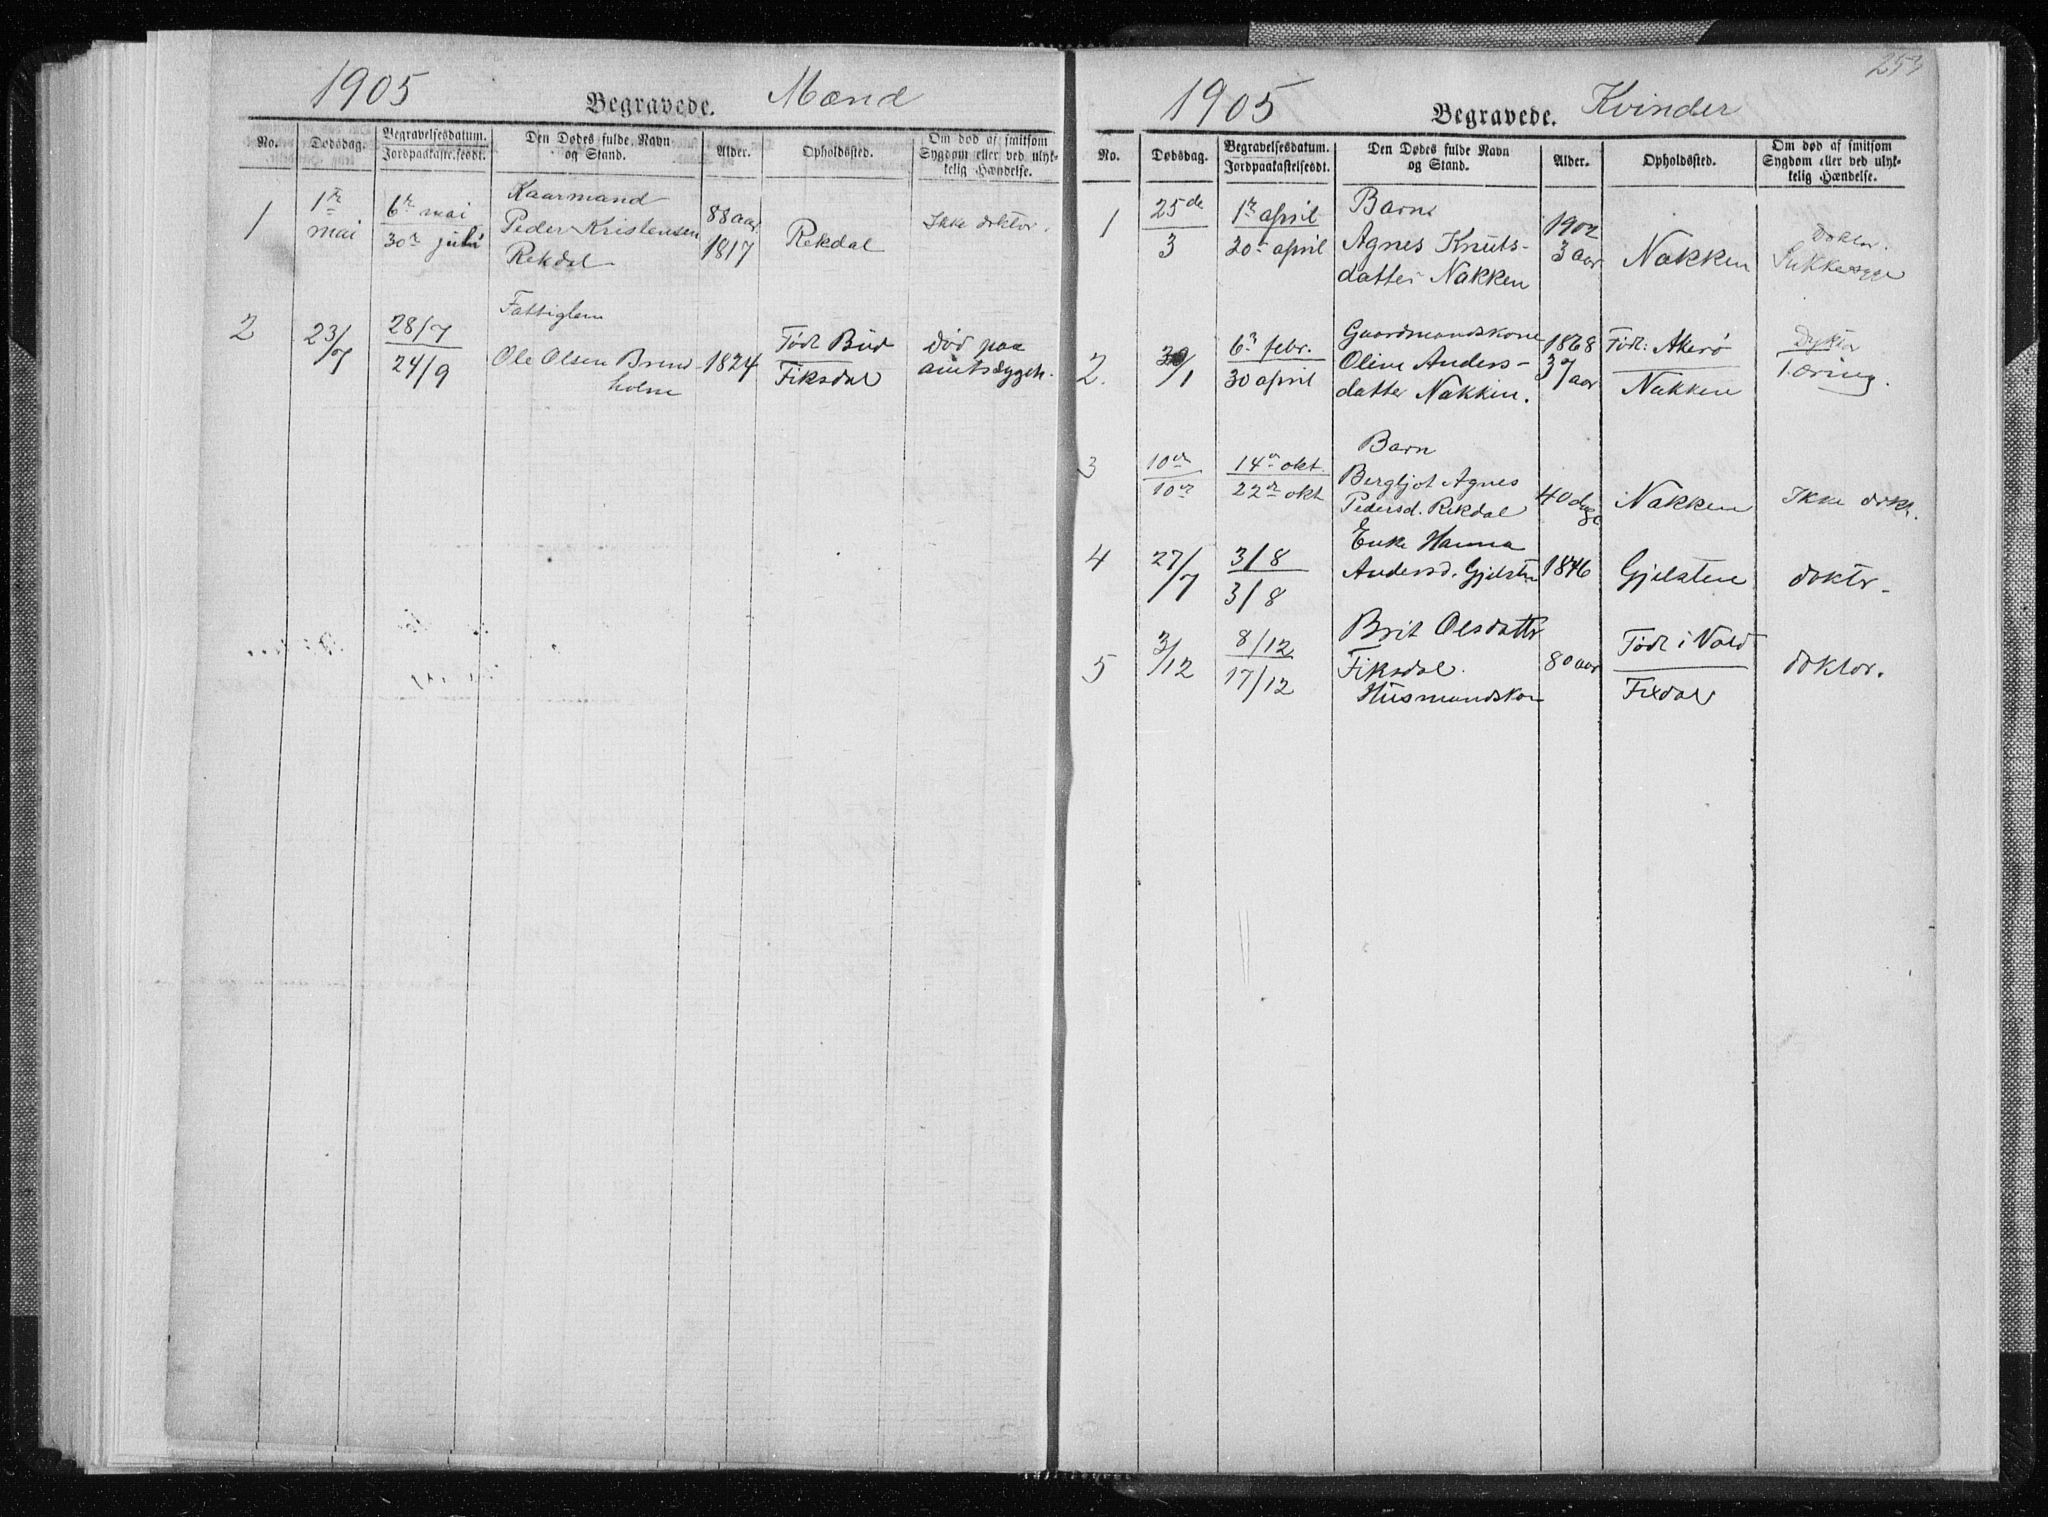 1905 Begravede. Mænd
No. Dødsdag. Begravelsesdatum. Jordpaakastelsesdt. Den Dødes fulde Navn og Stand. Alder. Opholdssted. Om død af smitsom Sygdom eller ved ulykkelig Hændelse.
1 1ste mai 6te mai
30te juli
Kaarmand
Peder Kristensen
Rekdal
88 aar
1817
Rekdal
Ikke doktor.
2 23/7 28/7
24/9
Fattiglem
Ole Olsen
holm
1824
Født Bud
Fiksdal
Død paa
amtssygeh.
253
1905 Begravede. Kvinder
No. Dødsdag. Begravelsesdatum. Jordpaakastelsesdt. Den Dødes fulde Navn og Stand. Alder. Opholdssted. Om død af smitsom Sygdom eller ved ulykkelig Hændelse.
1 25de
3
1ste april
20de april
Barn
Agnes Knuts-
datter Nakken
1902
3 aar
Nakken
Doktor.
Sukkersyge
2. 30/1
6te febr.
30 april
Gaardmandskone
Oline Anders-
datter Nakken.
1868
37 aar
Født: Akerø
Nakken
Tæring.
3 10de
10de
14de okt.
22de okt
Barn
Bergljot Agnes
Pedersd. Rekdal
40 dage
Nakken
Ikke dokt.
4 27/7
3/8
3/8
Enke Hanna
Andersd. Gjelsten
1846
Gjelsten
doktr.
5 3/12
8/12
17/12
Brit Olsdattr
Fiksdal.
Husmandskon
80 aar
Født i Vold
Fixdal
doktor.